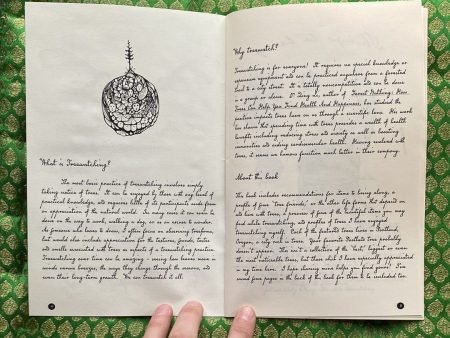 What is Treewatching?
The most basic practice of treewatching involves simply
taking notice of trees. It can be enjoyed by those with any level of
practical knowledge, and requires little of its participants aside from
an appreciation of the natural world. As many trees it can even be
done on the way to work, walking a dog, or on screen is wonder.
As someone who loves to draw, I often focus on observing treeforms,
but would also include appreciation for the textures, sounds, tastes
and smells associated with trees as aspects of a treewatching practice.
Treewatching over time can be amazing - seeing how leaves move in
winds versus breezes, the ways they change through the seasons, and
even their long-term growth. We can treewatch it all.
Why treewatch?
Treewatching is for everyone! It requires no special knowledge or
expensive equipment and can be practiced anywhere from a forested
trail to a city street. It is totally noncompetitive and can be done
in a group or alone. Dr Qing Li, author of Forest Bathing: How
Trees Can Help You Find Health And Happiness, has studied the
positive impacts trees have on us through a scientific lens. His work
has shown that spending time with trees provides a wealth of health
benefits including reducing stress and anxiety as well as boosting
immunities and aiding cardiovascular health. Having evolved with
trees, it seems us humans function much better in their company.
About this book
This book includes recommendations for items to bring along, a
profile of four 'tree friends', or the other life forms that depend on
and live with trees, a preview of some of the beautiful items you may
find while treewatching, and profiles of trees I have enjoyed
treewatching myself. Each of the featured trees lives in Portland,
Oregon, a city rich in trees. Your favorite Portland tree probably
doesn't appear. This isn't a collection of the "best," biggest or even
the most noticeable trees, but those which I have especially appreciated
in my time here. I hope sharing mine helps you find yours! I've
saved some pages in the back of the book for them to be included too.